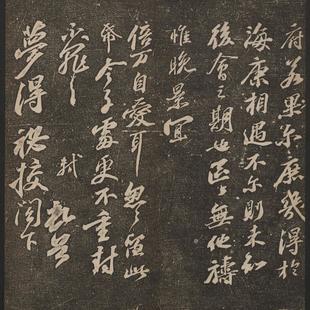 府若果尔庶幾得於
海康相遇不尔則未知
後會之期也區區無他禱
惟晚景宜
倍万自愛耳匆匆留此
帋令子處更不重封
不罪不罪 軾頓首
夢得秘校閣下